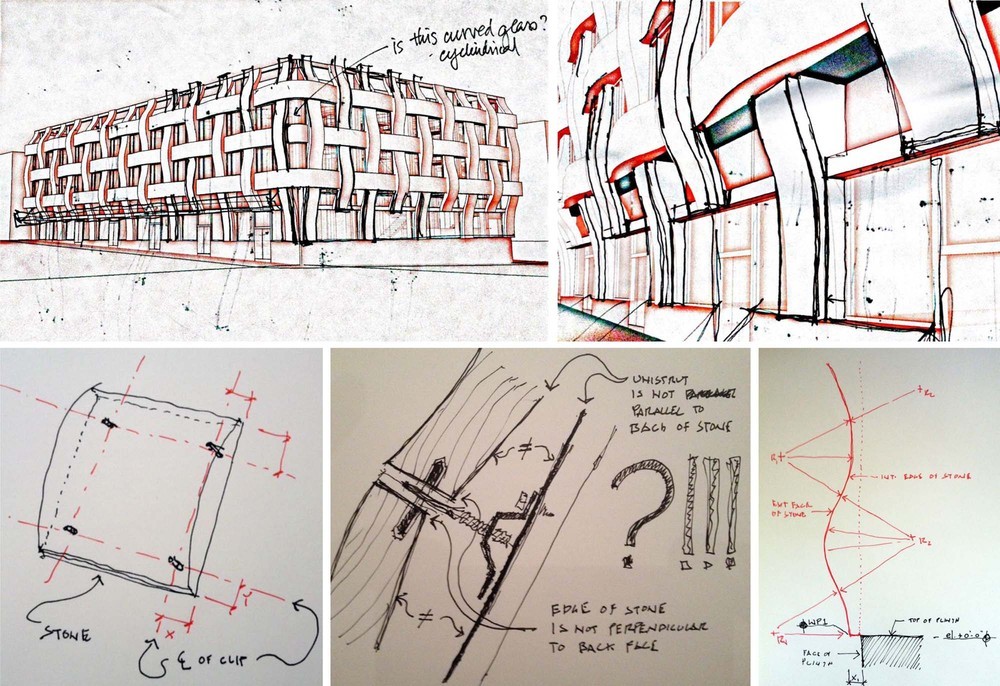 is this curved glass?
cyclindrical
STONE
X
Y
℄ OF CLIP
UNISTRUT
IS NOT
PARALLEL TO
BACK OF STONE
≠
≠
?!!!
EDGE OF STONE
IS NOT PERPENDICULAR
TO BACK FACE
R2
R1
INT. EDGE OF STONE
EXT FACE
OF STONE
R2
R1
WP1
TOP OF PLINTH
el. + 0'-0"
FACE OF
PLINTH
X1